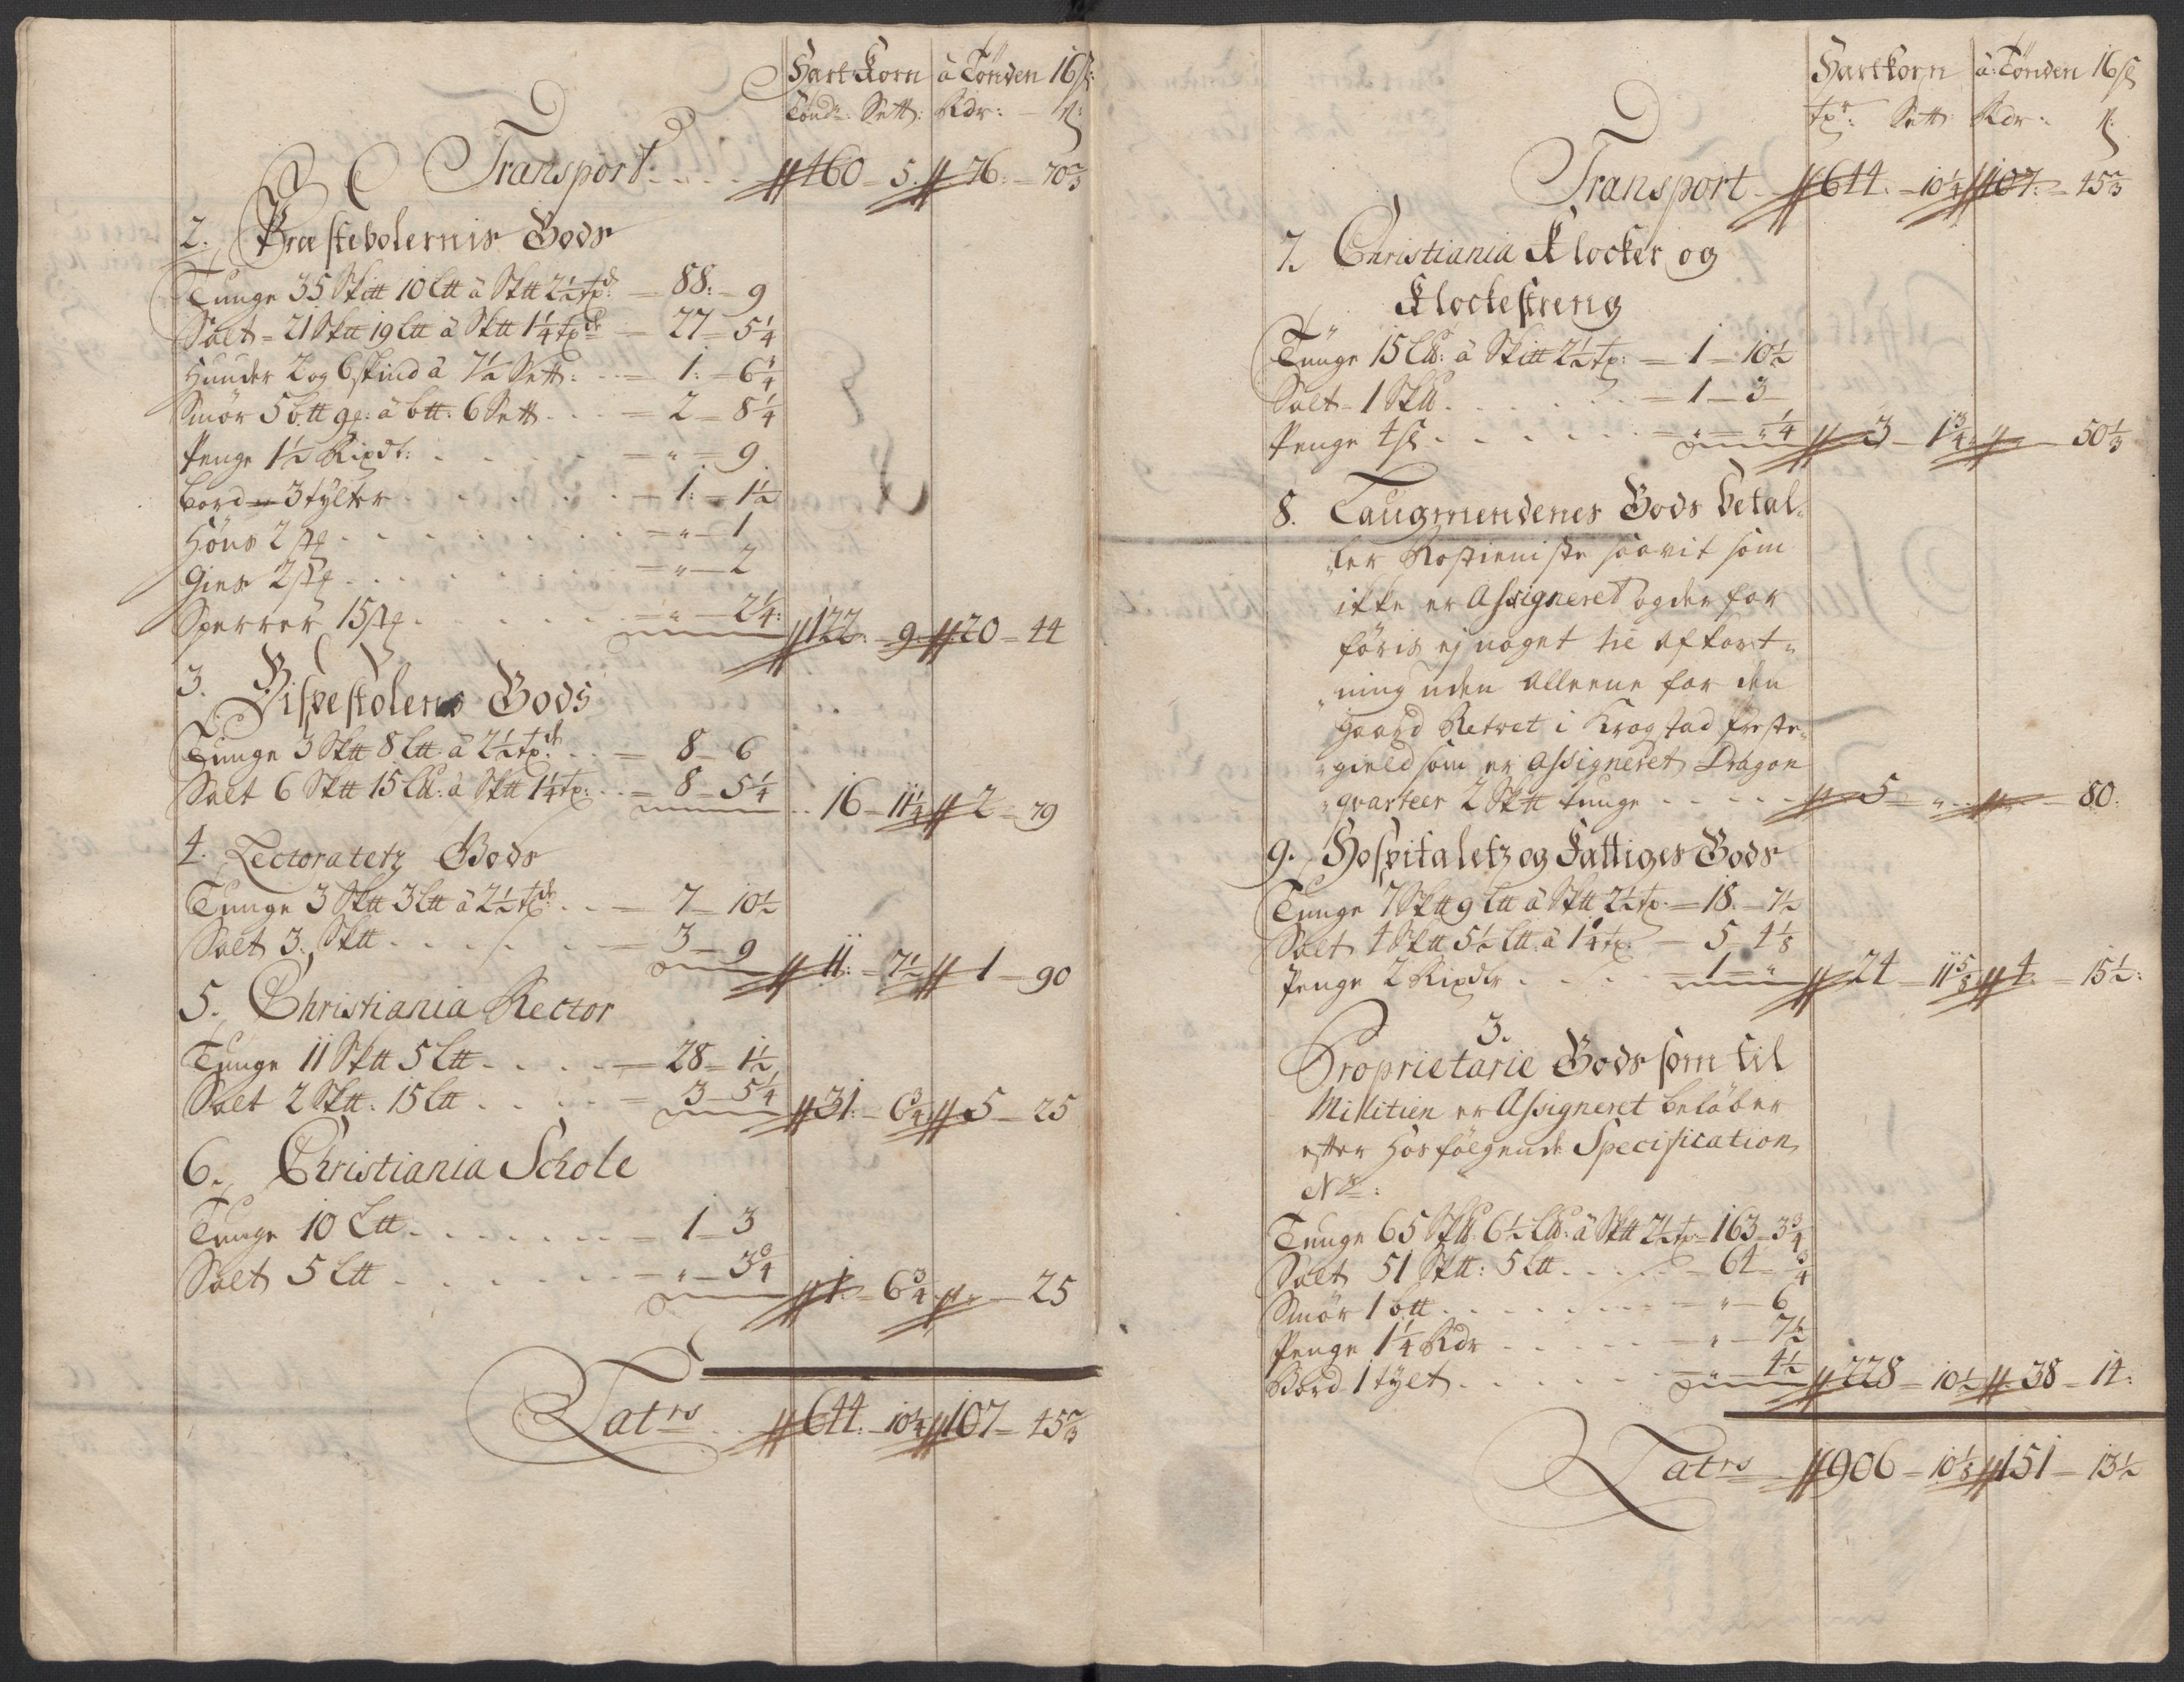 Hartkorn à Tønden 16 ß:
Tønd: Sett: Rdr: ß:
Transport . . . 460 - 5 . 76: - 70 2/3
2. Præstebolernis Gods
Tunge 35 Skt 10 Ltt à Sktt 2½ tp:dr = 88: - 9
Salt - 21 Sktt 19 Ltt à Sktt 1¼ tp:dr = 27 - 5¼
Huuder 2 og 6 skind à 7½ Sett: . . = 1: - 6¼
Smör 5 b:tt 9 p: à btt: 6 Sett . . . = 2 - 8¼
Penge 1½ Rixdl: . . . . = " = 9
Bord - 3 tylter . . . . . = 1: - 1½
Höns 2 stp . . . . . . = " - 1
Gies 2 stp . . . . . . = " - 2
Sperrer 15 stp . . . . . = " - 2¼: 122: - 9: 20 - 44
3. Bispestolens Gods
Tunge 3 Sktt 8 Ltt à 2½ tp:dr . . = 8 - 6
Salt 6 Sktt 15 Ltt: à Sktt 1¼ tp: . . = 8 - 5¼ . . 16 - 11¼ 2 - 79
4. Lectoratetz Gods
Tunge 3 Sktt 3 Ltt à 2½ tp:dr . . = 7 - 10½
Salt 3: Sktt . . . . . = 3 - 9 11: - 7½ 1 - 90
5. Christiania Rector
Tunge 11 Sktt 5 Ltt . . . . = 28 - 1½
Salt 2 Sktt: 15 Ltt . . . = 3 - 5¼ 31: - 6¾ 5 - 25
6. Christiania Schole
Tunge 10 Ltt . . . . . . = 1 - 3
Salt 5 Ltt . . . . . . = " - 3¾ 1 - 6¾ " - 25
Latrs . . 644: - 10¼ 107 - 45 2/3
Hartkorn à: Tønden 16 ß
tpr: Sett: Rdr: ß:
Transport 644: - 10¼ 107: - 45 2/3
7. Christiania Klocker og
Klockestreng
Tunge 15 Ltt: à Sktt 2½ tp: = 1 - 10½
Salt - 1 Sktt . . . . . = 1 - 3
Penge 4 ß . . . . . . = " = " ¼ 3 - 1¾ " - 50 1/3
8. Laugmendenes Gods betal-
"ler Rostieniste saavit som
ikke er Assigneret og derfor
föris ej noget til afkort-
"ning uden alleene for den
gaard Retvet i Kragstad preste-
"gield som er Assigneret Dragon
"qvarteer 2 Sktt tunge . . . . 5 = " . . - 80:
9. Hospitaletz og Fattiges Gods
Tunge 7 Sktt 9 Ltt à Sktt 2½ tp: = 18 - 7½
Salt 4 Sktt 5½ Ltt: à 1¼ tp: - 5 - 4 1/8
Penge 2 Rixdlr . . . = 1 = " 24 - 11 5/8 4 = 15½:
3.
Proprietarie Gods som til
Militien er Assigneret belöber
efter hosfölgende Specification
No:
Tunge 65 Sktt: 6½ Ltt: à Sktt 2½ tp: = 163 - 3¾
Salt 51 Sktt: 5 Ltt . . . . = 64 - ¾
Smör 1 btt . . . . . . = " - 6
Penge 1¼ Rdr . . . . . = " - 7½
Bord 1 tylt . . . . . = " = 4½ 228 - 10½ 38 - 14:
Latrs 906 - 10 1/8 151 - 13½